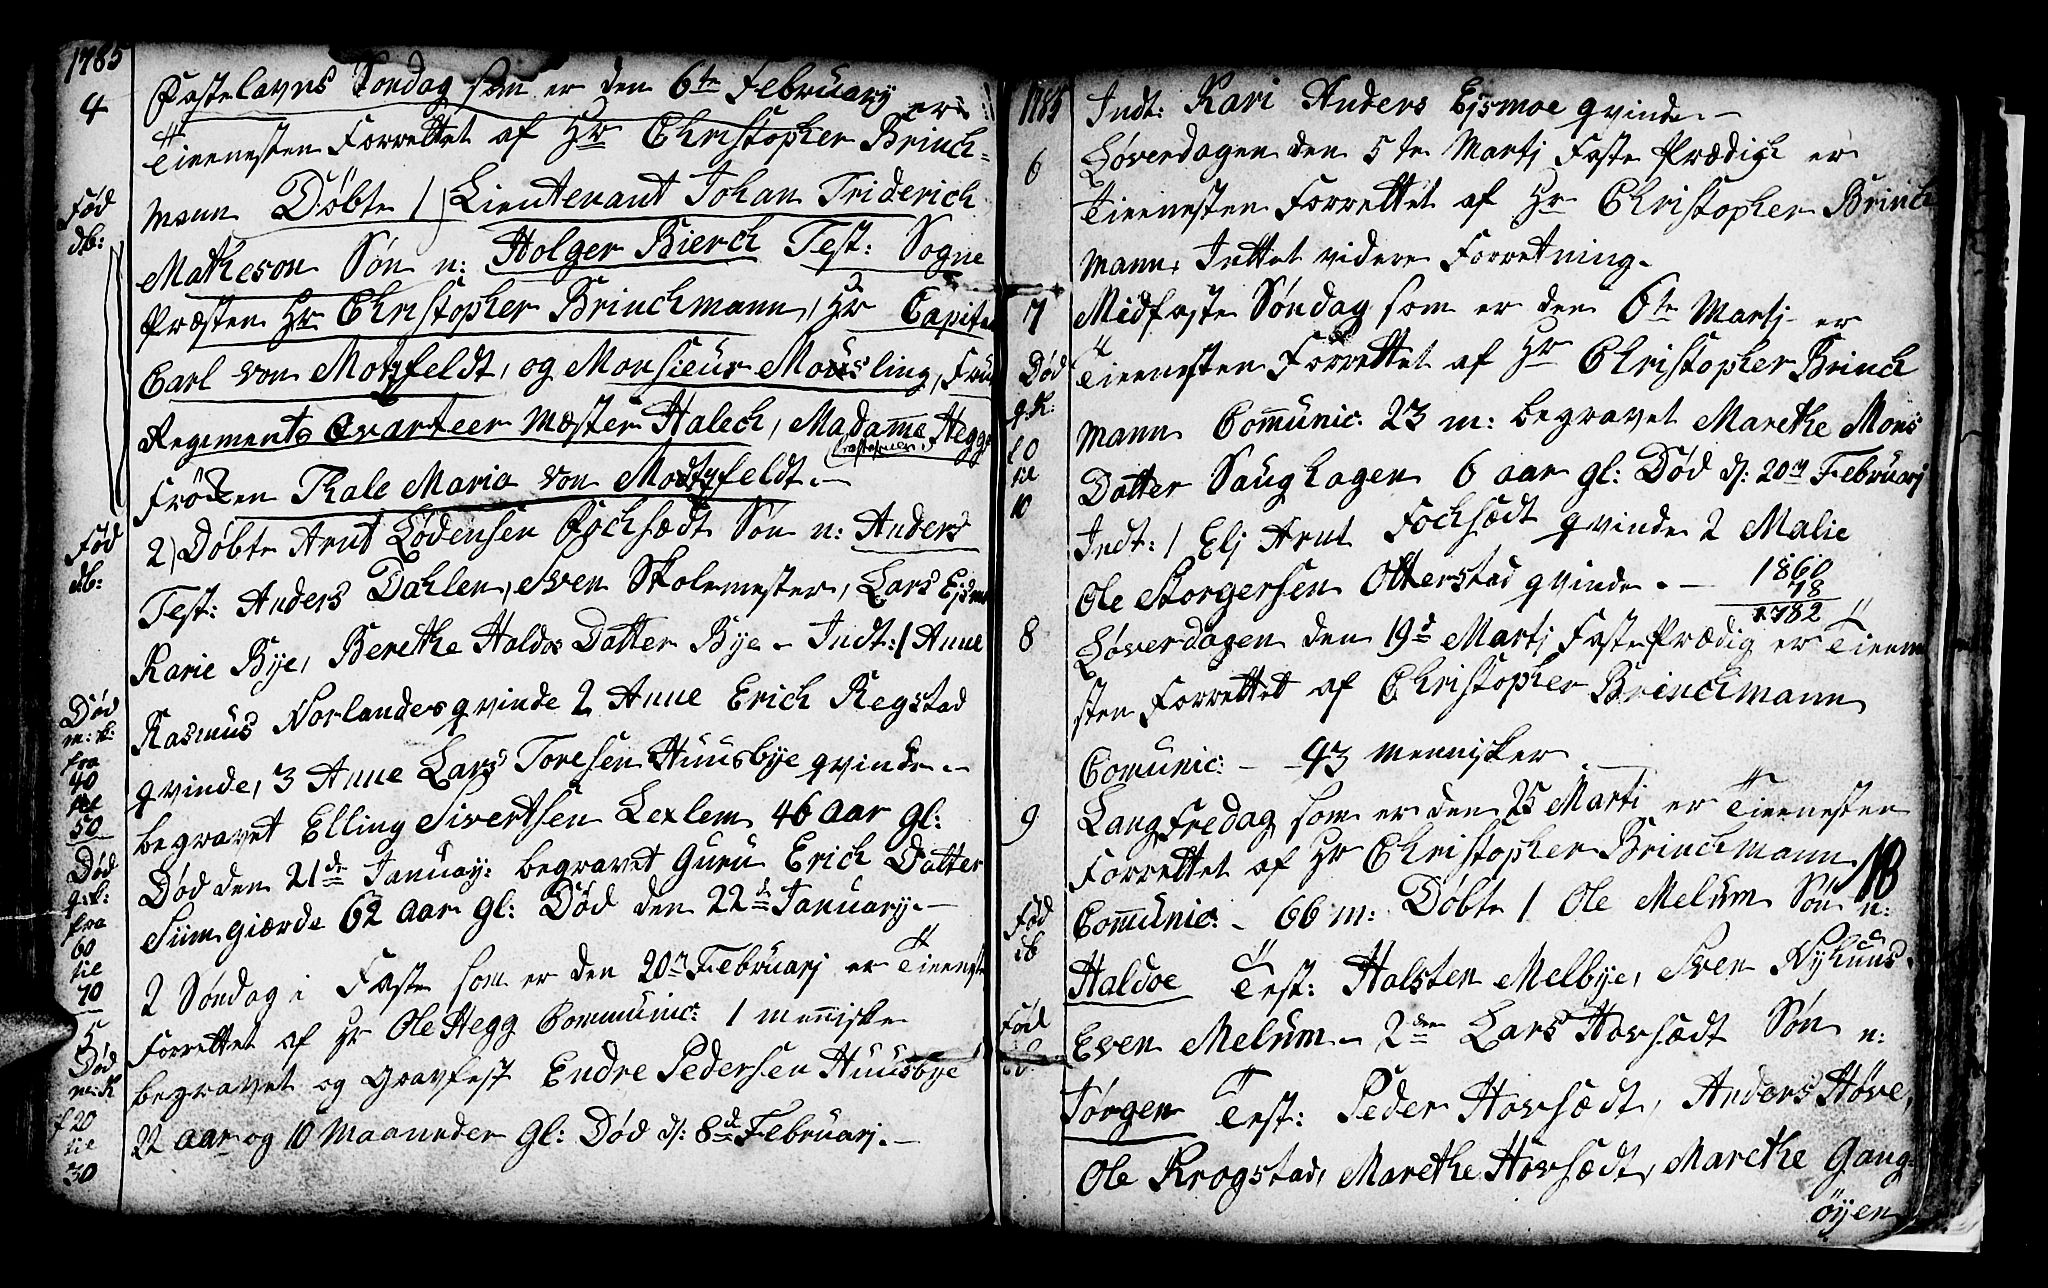 1785
4
Fastelavns Søndag som er den 6te Februarj er
Tienesten Forrettet af Hr Christopher Brinch=
mann Døbte 1) Lieutenant Johan Friderich
Født
db:
Matheson Søn n: Holger Bierch Test: Sogne
Præsten Hr Christopher Brinchmann, Hr Capit
Carl von Motzfeldt, og Monsieur Mousling, Frue
Regiments Qvarteer Mæster Halech, Madame Hegg
Frøken Thale Maria von Motzfeldt.-
Fød
db:
2) Døbte Arnt Lødensen Fochsædt Søn n: Anders
Test: Anders Dahlen, Sven Skolemester, Lars Ejsmo
Karie Bye, Berethe Haldos Datter Bye - Indt: 1 Anne
Død
m:k:
fra
40
til
50
Rasmus Norlanders qvinde 2 Anne Erich Regstad
qvinde, 3 Anne Lars Toresen Huusbye qvinde.-
begravet Elling Sivertsen Lexlem 46 aar gl:
Død den 21de January: begravet Guru Erich Datter
Død
q:k:
fra
60
til
70
Siimgiærde 62 aar gl: Død den 22de January.-
5
2 Søndag i Faste som er den 20m Februarj er Tieneste
Forrettet af Hr Ole Hegg Communic: 1 menniske
Død
m:k
f 20
til
30
begravet og Gravfest Endre Pedersen Huusbye
22 aar og 10 Maaneder gl: Død d: 8de Februarj.-
1785
Indt: Kari Anders Ejsmoe qvinde.-
6
Løverdagen den 5te Martj Faste Prædich er
Tienesten Forrettet af Hr Christopher Brinch
mann, Inttet videre Forretning.
7
Midfaste Søndag som er den 6te Martj er
Tienesten Forrettet af Hr Christopher Brinch
Død
q.k:
f 0
til
10
mann Comunic: 23 m: begravet Marethe Mons
Datter Saughagen 6 aar gl: Død d: 20m Februarj
Indt: 1 Elj Arnt Fochsædt qvinde 2 Malie
Ole Storgersen Otterstad qvinde.-
1860
78
1782
8
Løverdagen den 19d Martj Faste Prædig er Tiene
sten Forrettet af Christopher Brinchmann
Comunic: - 43 mennisker -
9
Langfredag som er den 25 Marti er Tienesten
Forrettet af Hr Christopher Brinchmann
18
Fød
db
Comunic: - 66 m: Døbte 1 Ole Melum Søn n:
Haldoe Test: Halsten Melbye, Sven Nyhuus
Fød
Even Melum - 2den Lars Hovsædt Søn n:
Jørgen Test: Peder Hovsædt, Anders Høve,
Ole Krogstad, Marethe Hovsædt, Marethe Gang=
øyen